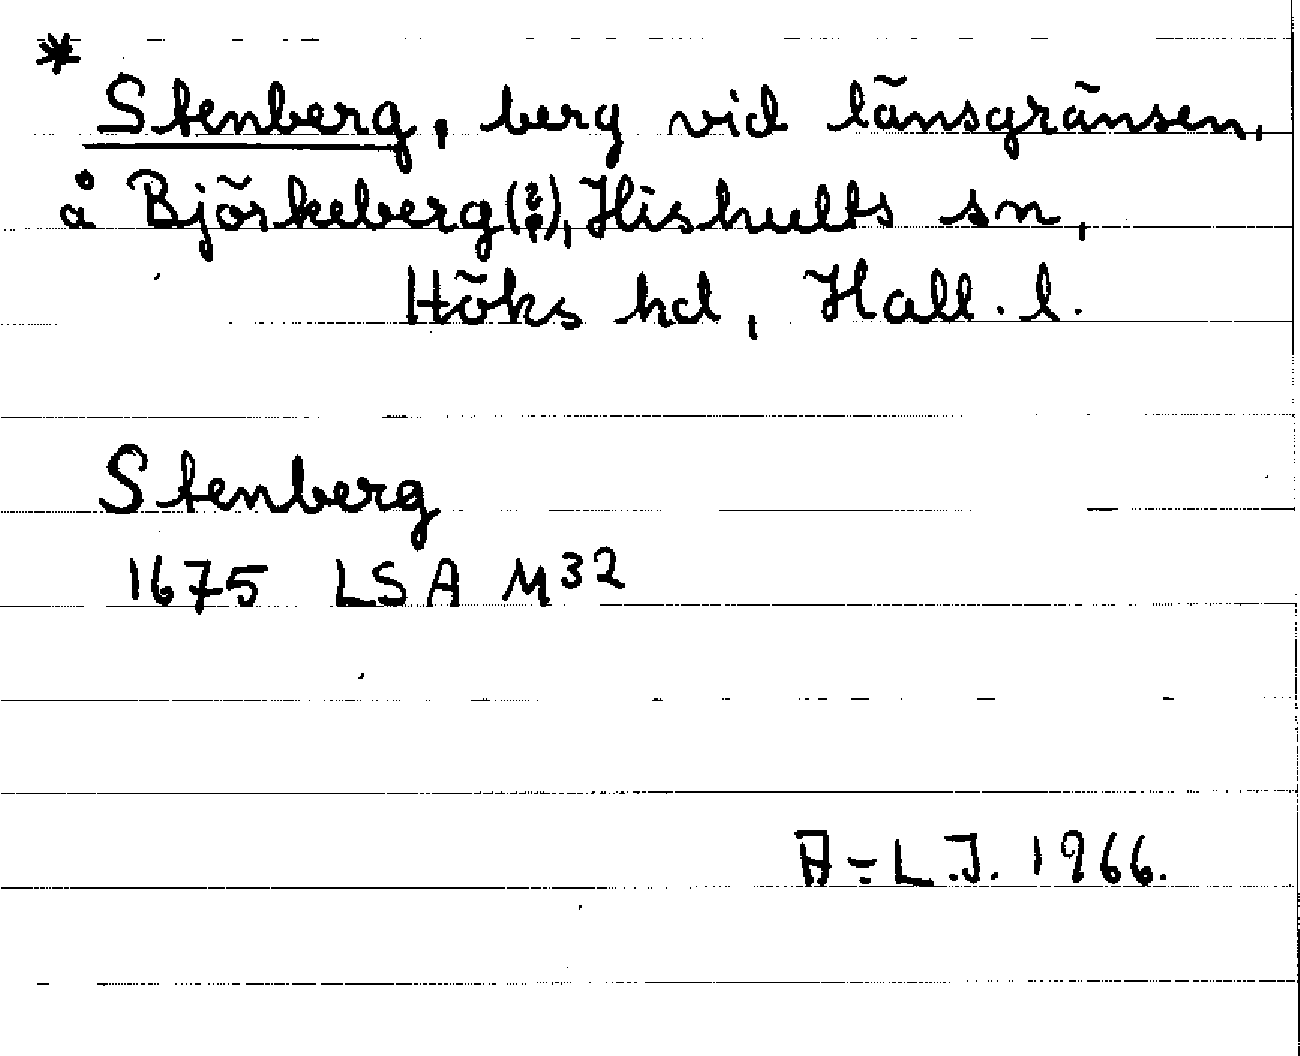 *
Stenberg, berg vid länsgränsen,
å Björkeberg(?), Hishults sn,
Höks hd, Hall. l.
Stenberg
1675 LSA M32
A-L.J. 1966.